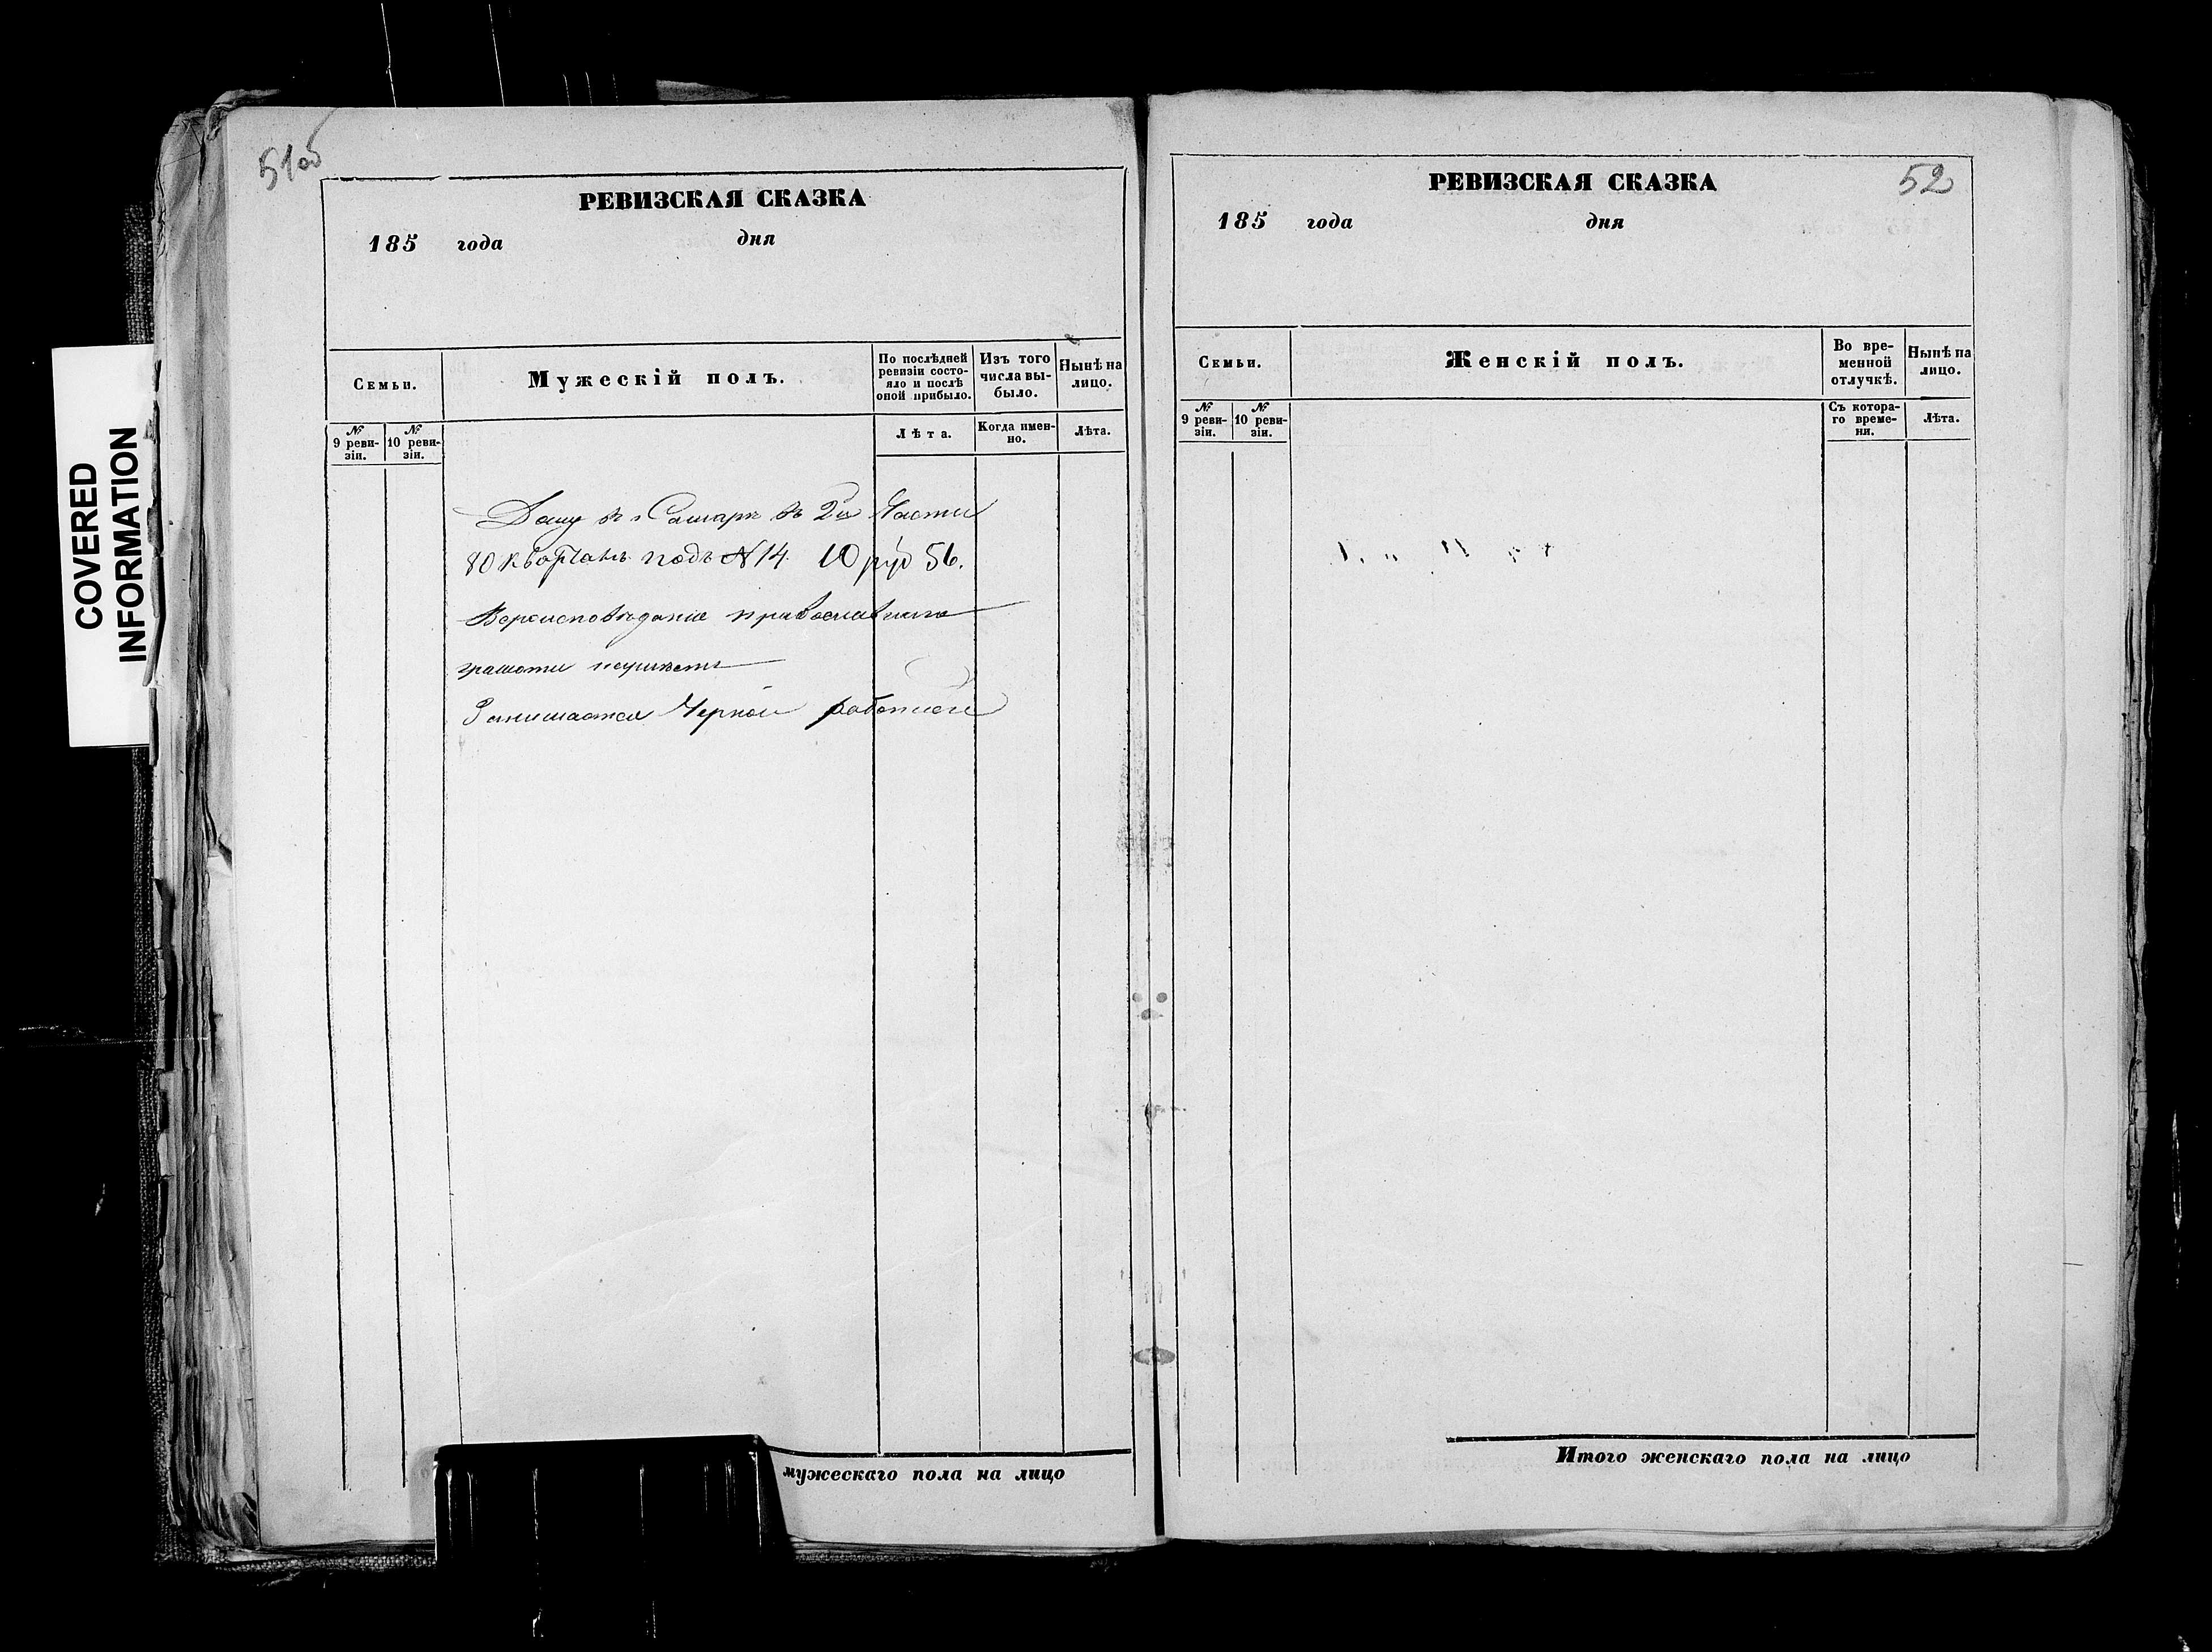 COVERED
INFORMATION
51об
РЕВИЗСКАЯ СКАЗКА
185 года дня
Семьи.
Мужескій полъ.
По послѣдней
ревизіи состо-
яло и послѣ
оной прибыло.
Изъ того
числа вы-
было.
Нынѣ на
лицо.
№
9 реви-
зіи.
№
10 реви-
зіи.
Лѣта.
Когда имен-
но.
Лѣта.
Домъ въ г. Самарѣ въ 2й Части
80 кварталѣ подъ № 14. 10 руб 56.
Вероисповѣданія православнаго
грамоти неумѣетъ
Занимается Черной работой
мужескаго пола на лицо
52
РЕВИЗСКАЯ СКАЗКА
185 года дня
Семьи.
Женскій полъ.
Во вре-
менной
отлучкѣ.
Нынѣ на
лицо.
№
9 реви-
зіи.
№
10 реви-
зіи.
Съ котора-
го време-
ни.
Лѣта.
Итого женскаго пола на лицо